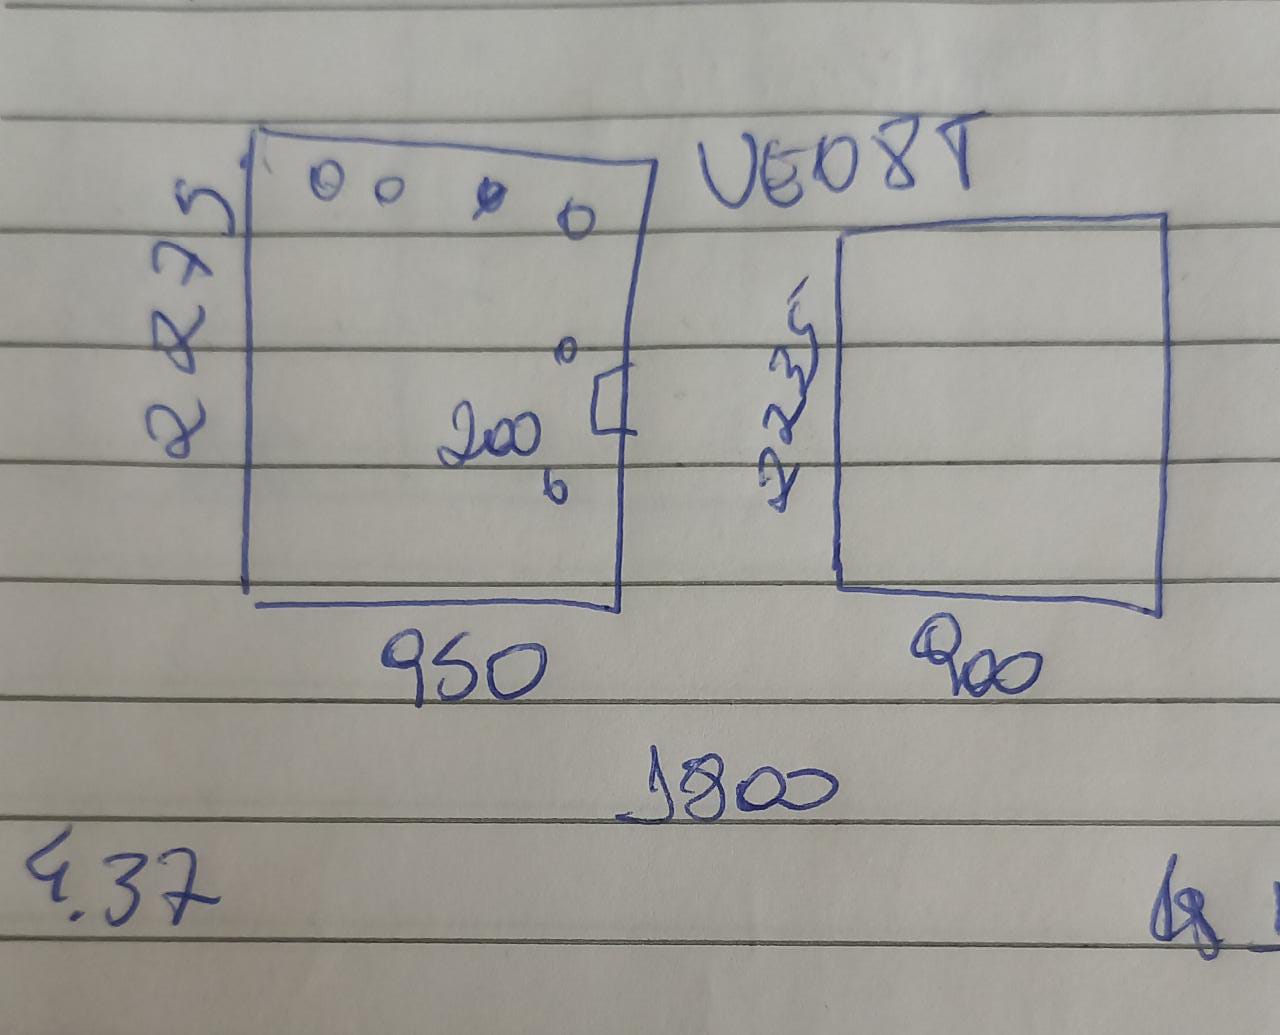 VE08T
2275
200
2235
950
900
1800
4.37
18